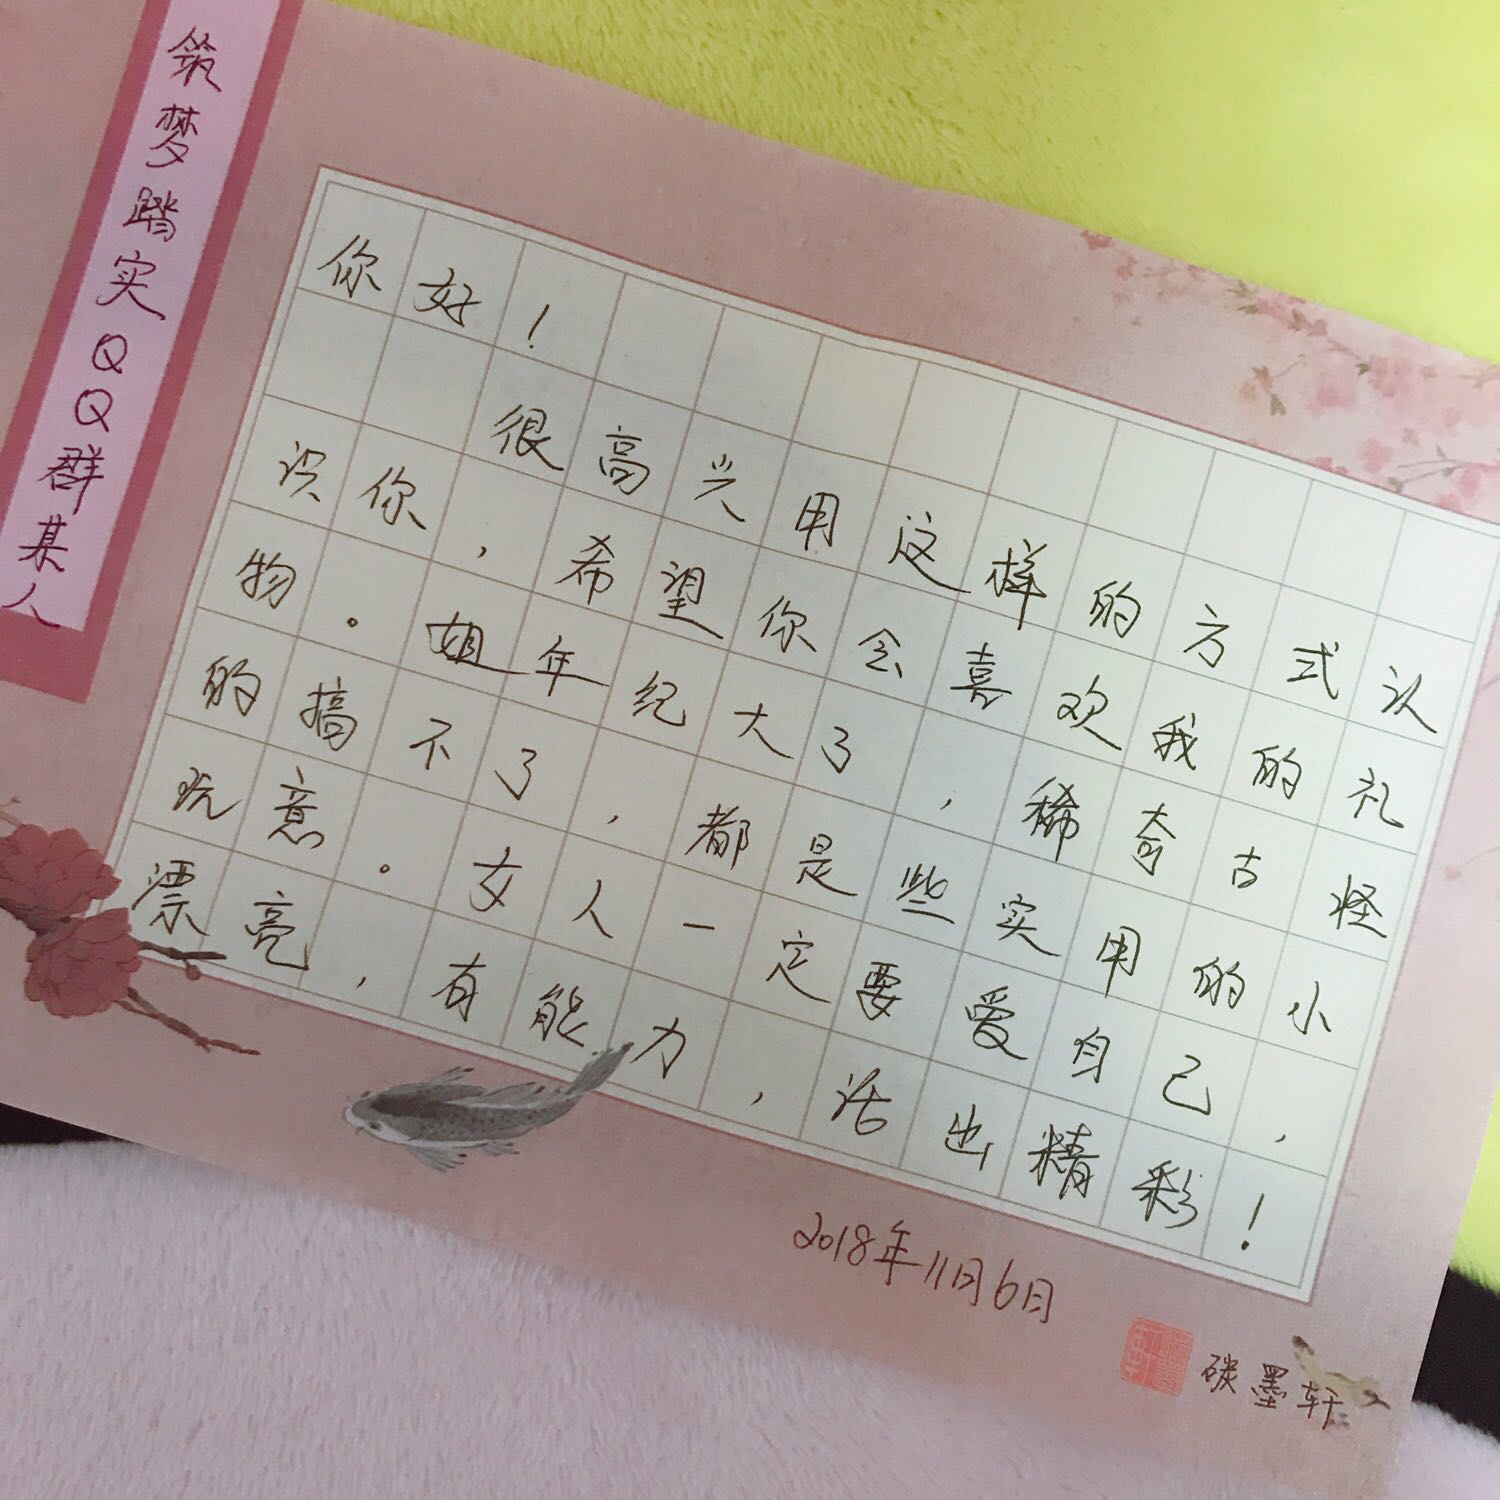 筑梦踏实QQ群某人
你好！
很高兴用这样的方式认
识你，希望你会喜欢我的礼
物。姐年纪大了，稀奇古怪
的搞不了，都是些实用的小
玩意。女人一定要爱自己，
漂亮，有能力，活出精彩！
2018年11月6日
碳墨轩